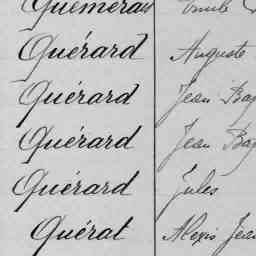 Quémeras
Quérard Auguste
Quérard Jean Bap
Quérard Jean Bap
Quérard Jules
Quérat Alexis Jean